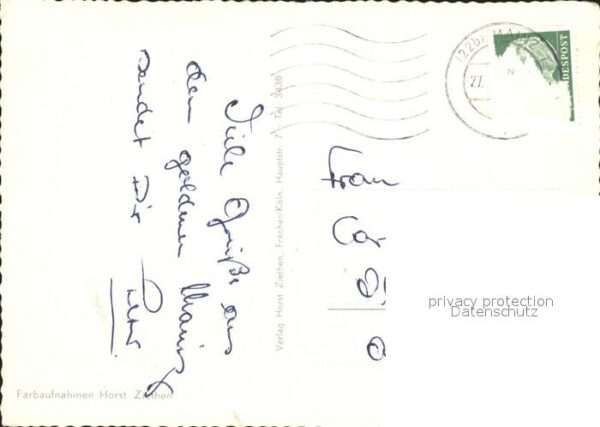 Viele Grüße aus
dem goldenen Mainz
sendet Dir
Peter
Farbaufnahmen Horst Ziethen
Verlag Horst Ziethen, Frechen-Köln, Hauptstr. 7 · Tel. 3438
(22b) MA
27.
DESPOST
Frau
privacy protection
Datenschutz